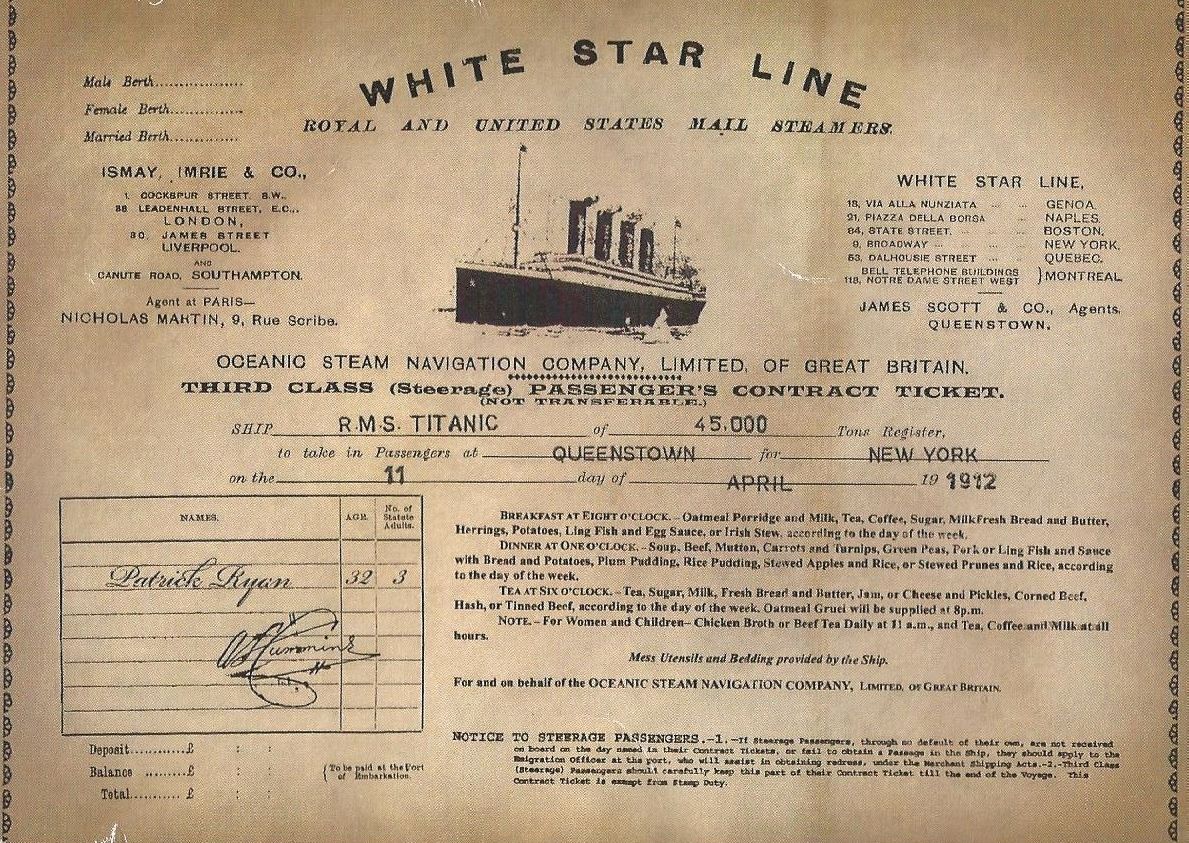 WHITE STAR LINE
ROYAL AND UNITED STATES MAIL STEAMERS.
Male Berth..................
Female Berth...............
Married Berth...............
ISMAY, IMRIE & CO.,
1, COCKSPUR STREET, S.W.,
38 LEADENHALL STREET, E.C.,
LONDON,
30, JAMES STREET
LIVERPOOL.
AND
CANUTE ROAD, SOUTHAMPTON.
Agent at PARIS—
NICHOLAS MARTIN, 9, Rue Scribe.
WHITE STAR LINE,
18, VIA ALLA NUNZIATA ... ... GENOA.
21, PIAZZA DELLA BORSA ... NAPLES.
84, STATE STREET. ... ... BOSTON.
9, BROADWAY ... ... ... NEW YORK.
53, DALHOUSIE STREET ... ... QUEBEC.
BELL TELEPHONE BUILDINGS
118, NOTRE DAME STREET WEST } MONTREAL
JAMES SCOTT & CO., Agents.
QUEENSTOWN.
OCEANIC STEAM NAVIGATION COMPANY, LIMITED, OF GREAT BRITAIN.
THIRD CLASS (Steerage) PASSENGER'S CONTRACT TICKET.
(NOT TRANSFERABLE.)
SHIP R.M.S. TITANIC of 45,000 Tons Register,
to take in Passengers at QUEENSTOWN for NEW YORK
on the 11 day of APRIL 19 1912
NAMES. AGE. No. of Statute Adults.
Patrick Ryan 32 3
Deposit............£ : :
Balance .........£ : :
Total............ £ : :
{To be paid at the Port
of Embarkation.
BREAKFAST AT EIGHT O'CLOCK.–Oatmeal Porridge and Milk, Tea, Coffee, Sugar, MilkFresh Bread and Butter,
Herrings, Potatoes, Ling Fish and Egg Sauce, or Irish Stew, according to the day of the week.
DINNER AT ONE O'CLOCK.–Soup, Beef, Mutton, Carrots and Turnips, Green Peas, Pork or Ling Fish and Sauce
with Bread and Potatoes, Plum Pudding, Rice Pudding, Stewed Apples and Rice, or Stewed Prunes and Rice, according
to the day of the week.
TEA AT SIX O'CLOCK.–Tea, Sugar, Milk, Fresh Bread and Butter, Jam, or Cheese and Pickles, Corned Beef,
Hash, or Tinned Beef, according to the day of the week. Oatmeal Gruel will be supplied at 8p.m.
NOTE.–For Women and Children– Chicken Broth or Beef Tea Daily at 11 a.m., and Tea, Coffee and Milk at all
hours.
Mess Utensils and Bedding provided by the Ship.
For and on behalf of the OCEANIC STEAM NAVIGATION COMPANY, LIMITED, OF GREAT BRITAIN.
NOTICE TO STEERAGE PASSENGERS.-1.-If Steerage Passengers, through no default of their own, are not received
on board on the day named in their Contract Tickets, or fail to obtain a Passage in the Ship, they should apply to the
Emigration Officer at the port, who will assist in obtaining redress, under the Merchant Shipping Acts.-2.-Third Class
(Steerage) Passengers should carefully keep this part of their Contract Ticket till the end of the Voyage. This
Contract Ticket is exempt from Stamp Duty.